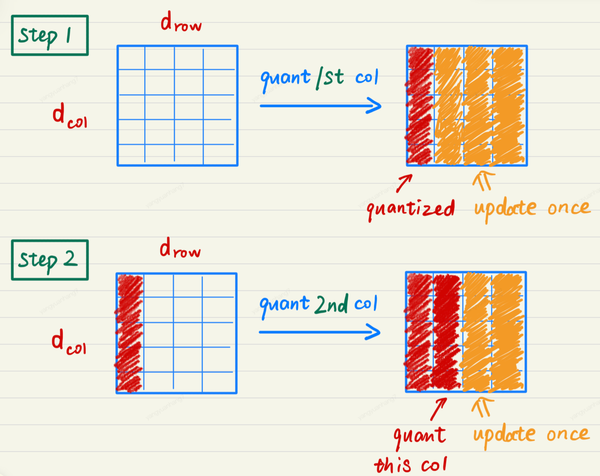 Step 1
drow
dcol
quant 1st col
quantized
update once
Step 2
drow
dcol
quant 2nd col
quant
this col
update once